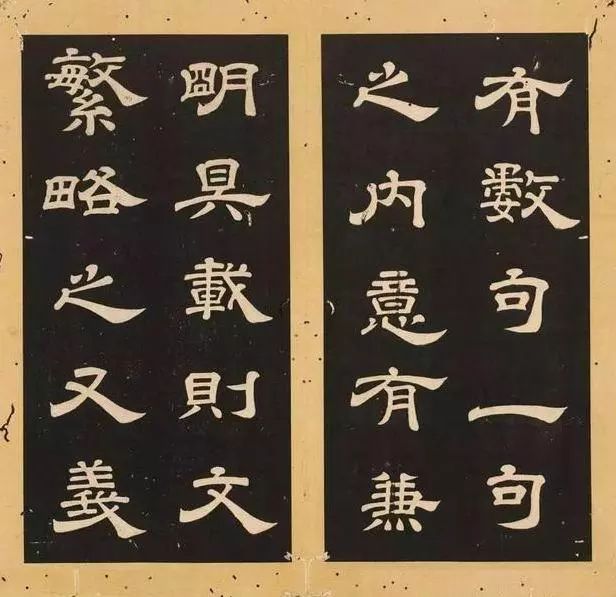 有數句一句
之内意有兼
明具載則文
繁略之又義